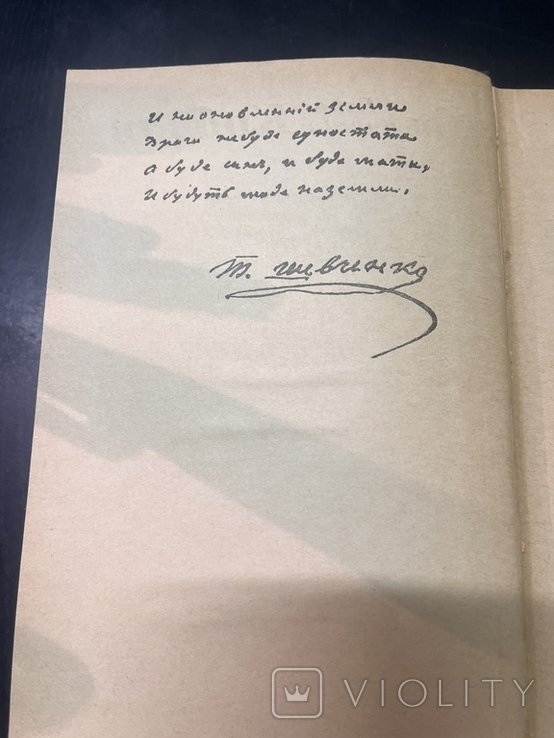 И на оновленній земли
Врага не буде супостата
А буде сынъ, и буде мати,
И будуть люде на земли.
Т. Шевченко
VIOLITY